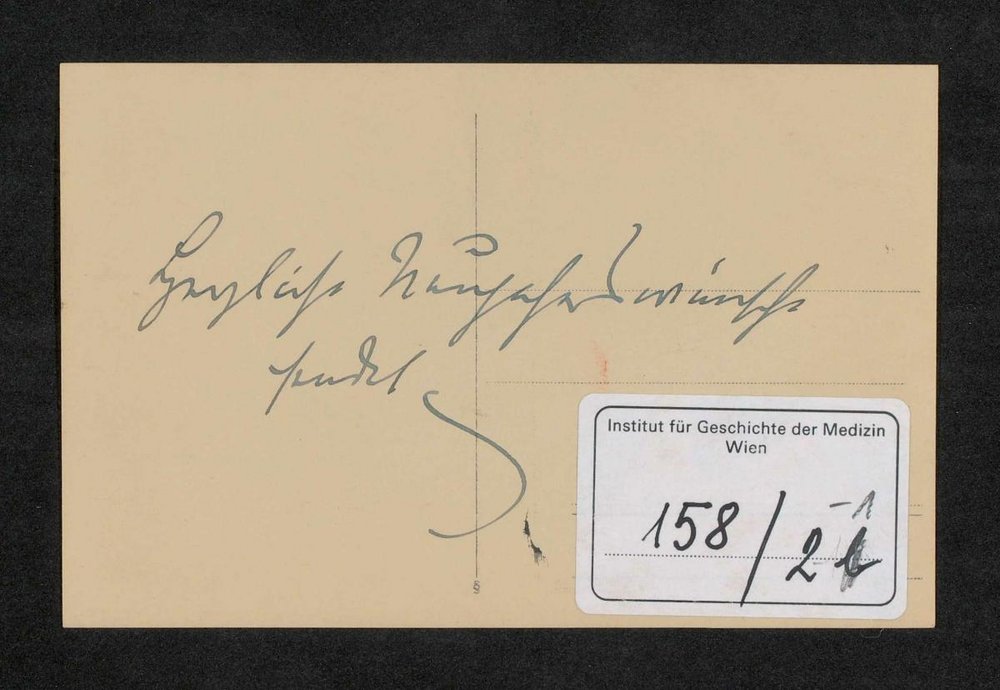 Herzliche Neujahrswünsche
sendet
Institut für Geschichte der Medizin
Wien
158/2b
-1